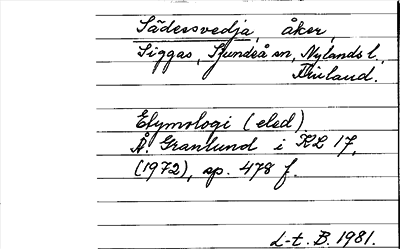 Sädessvedja, åker,
Siggas, Sjundeå sn, Nylands l.,
Finland.
Etymologi (eled).
Å. Granlund i KL 17,
(1972), sp. 478 f.
L-t. B. 1981.